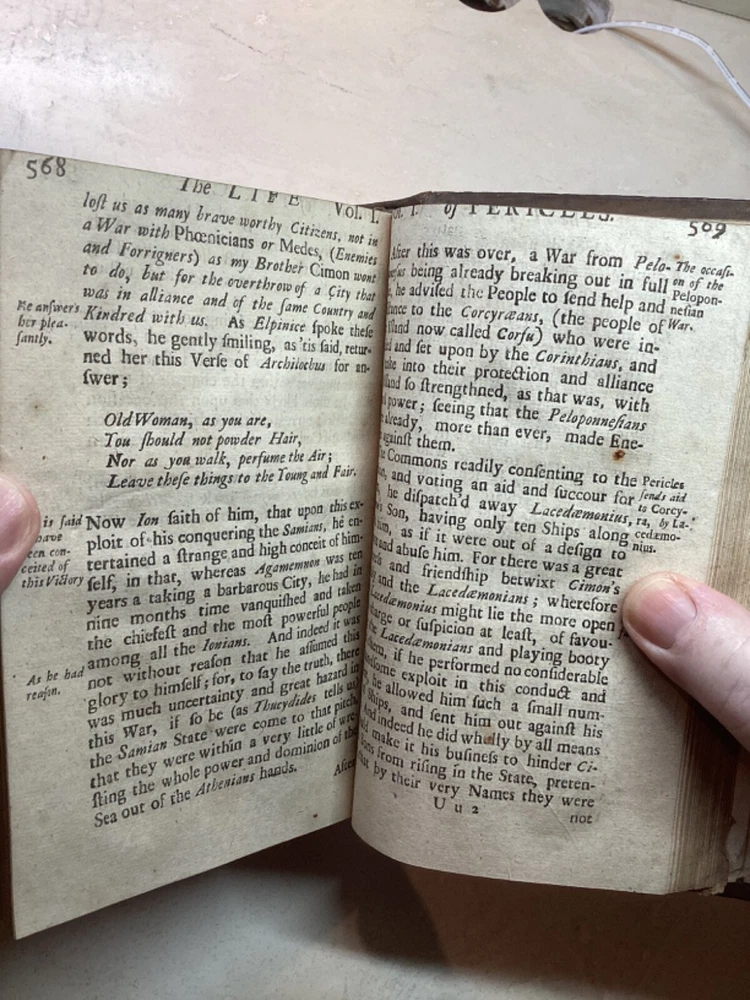 568
The LIFE Vol. I.
loſt us as many brave worthy Citizens, not in
a War with Phœnicians or Medes, (Enemies
and Forrigners) as my Brother Cimon wont
to do, but for the overthrow of a City that
was in alliance and of the ſame Country and
Kindred with us. As Elpinice ſpoke theſe
words, he gently ſmiling, as 'tis ſaid, retur-
ned her this Verſe of Archilochus for an-
ſwer;
He anſwers
her plea-
ſantly.
Old Woman, as you are,
You ſhould not powder Hair,
Nor as you walk, perfume the Air;
Leave theſe things to the Young and Fair.
Now Ion ſaith of him, that upon this ex-
ploit of his conquering the Samians, he en-
tertained a ſtrange and high conceit of him-
ſelf, in that, whereas Agamemnon was ten
years a taking a barbarous City, he had in
nine months time vanquiſhed and taken
the chiefeſt and the moſt powerful people
among all the Ionians. And indeed it was
not without reaſon that he aſſumed this
glory to himſelf; for, to ſay the truth, there
was much uncertainty and great hazard in
this War, if ſo be (as Thucydides tells us)
the Samian State were come to that pitch,
that they were within a very little of wre-
ſting the whole power and dominion of the
Sea out of the Athenians hands.
is ſaid
have
een con-
ceited of
this Victory
As he had
reaſon.
After
509
Vol. I. of PERICLES.
After this was over, a War from Pelo-
being already breaking out in full
he adviſed the People to ſend help and
to the Corcyræans, (the people of
Iſland now called Corfu) who were in-
and ſet upon by the Corinthians, and
into their protection and alliance
ſo ſtrengthned, as that was, with
power; ſeeing that the Peloponneſians
already, more than ever, made Ene-
againſt them.
The occaſi-
on of the
Pelopon-
neſian
War.
Commons readily conſenting to the
and voting an aid and ſuccour for
he diſpatch'd away Lacedæmonius,
Son, having only ten Ships along
him, as if it were out of a deſign to
and abuſe him. For there was a great
and friendſhip betwixt Cimon's
and the Lacedæmonians; wherefore
Lacedæmonius might lie the more open
or ſuſpicion at leaſt, of favou-
Lacedæmonians and playing booty
them, if he performed no conſiderable
exploit in this conduct and
he allowed him ſuch a ſmall num-
Ships, and ſent him out againſt his
And indeed he did wholly by all means
make it his buſineſs to hinder Ci-
from riſing in the State, preten-
by their very Names they were
Pericles
ſends aid
to Corcy-
ra, by La-
cedæmo-
nius.
U u 2
not